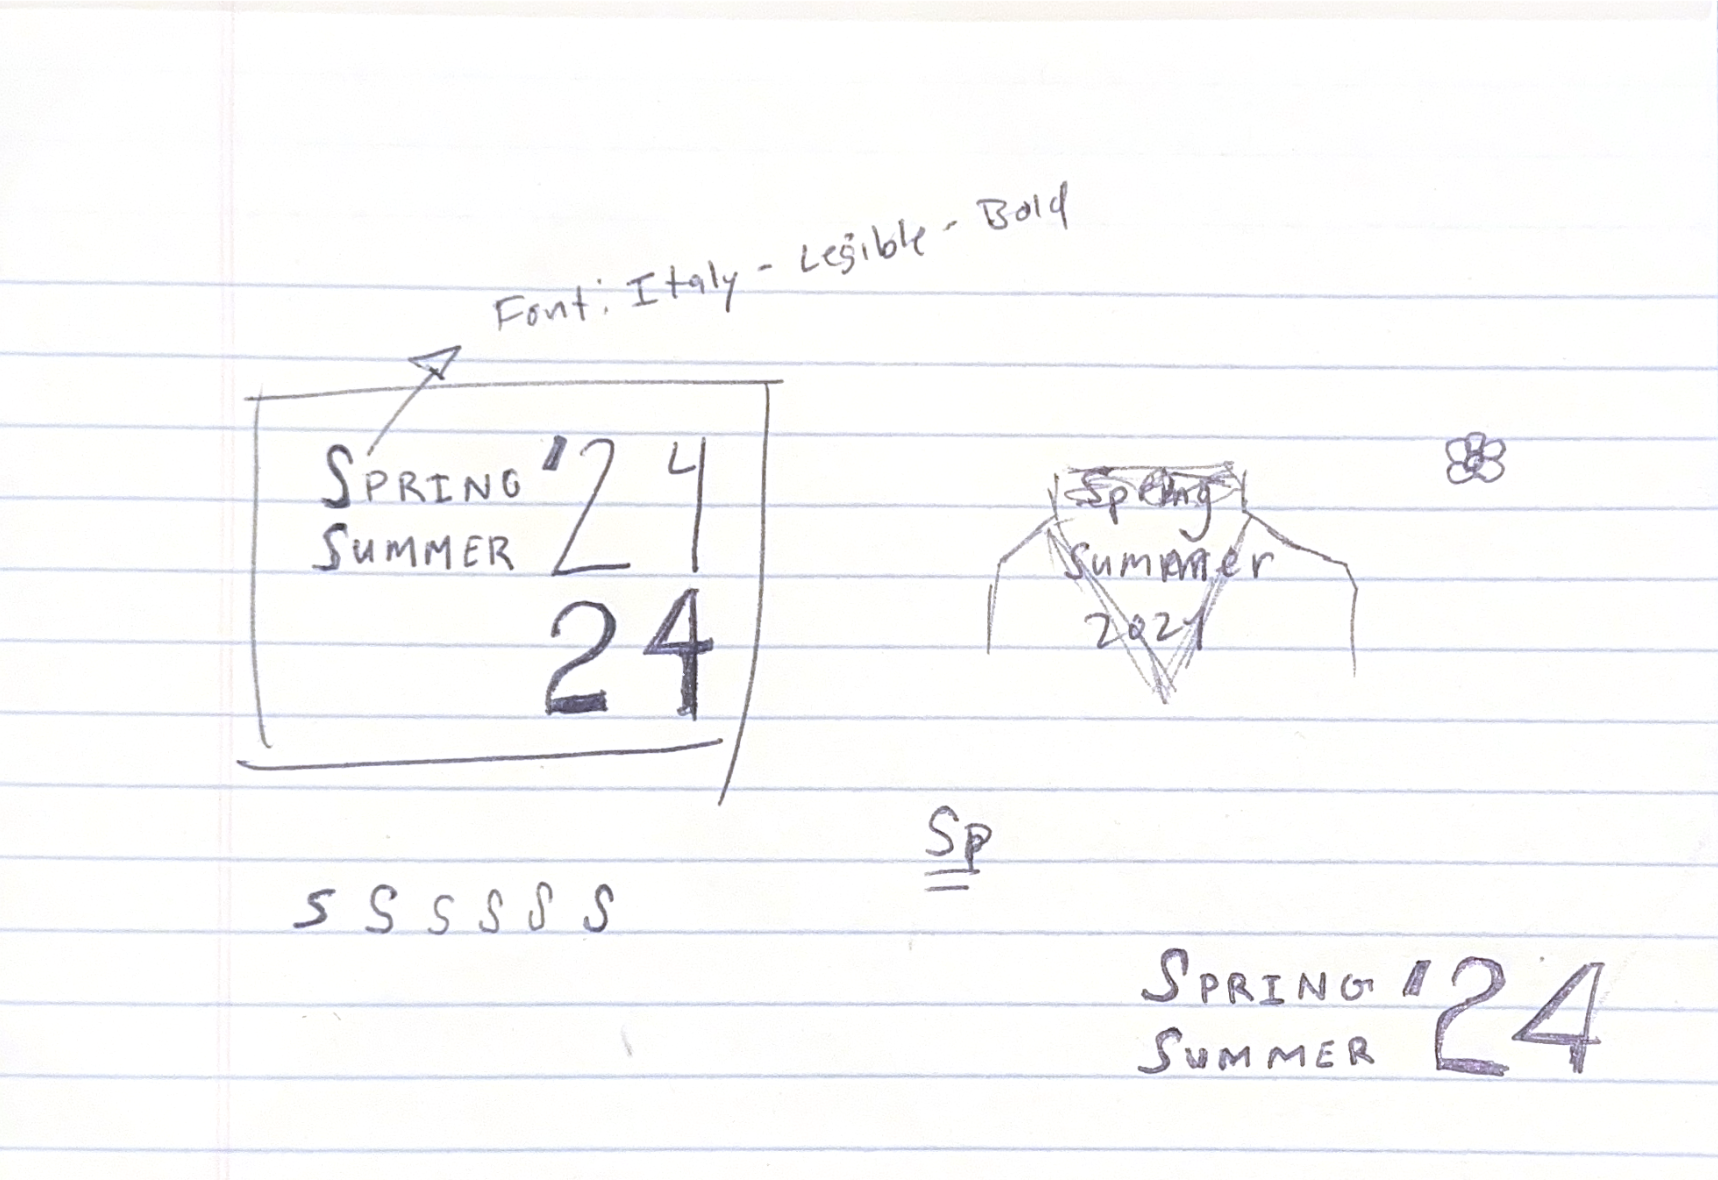 Font: Italy - Legible - Bold
SPRING '24
SUMMER
24
Spring
Summer
2024
Sp
S S S S S S
SPRING '24
SUMMER